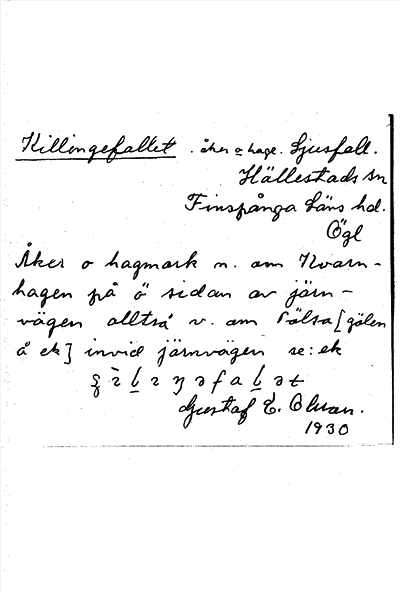 Killingefallet . åker o hage. Ljusfall.
Hällestads sn
Finspånga läns hd.
Ögl
Åker o hagmark n. om Kvarn-
hagen på ö sidan av järn-
vägen alltså v. om Pölsa [gölen
å ek] invid järnvägen se: ek
Gustaf E. Olsson.
1930